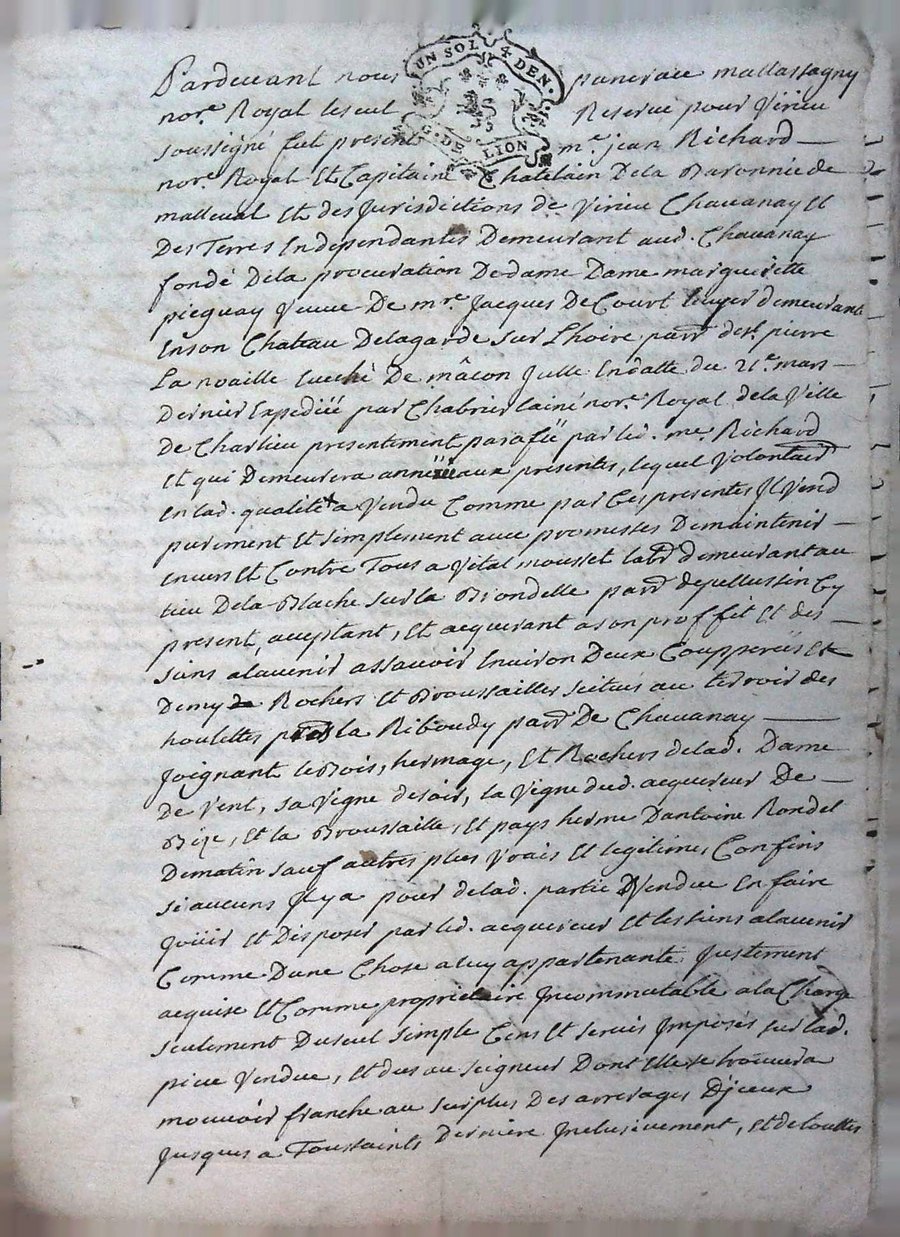 UN SOL 4 DEN.
G. DE LION
Pardevant nous pancrace mallassagny
nore. Royal le seul Reservé pour Virieu
soussigné fut present me. jean Richard
nore. Royal Et Capitaine Chatelain Dela Baronnie de
malleval Et des Jurisdictions de Virieu Chavanay Et
Des Terres Independantes Demeurant aud. Chavanay
fondé Dela procuration De dame Dame margueritte
pieguay Veuve De mre. Jacques De Court demeurant
En son Chateau Delagarde sur Lhoire parr. de st. pierre
La noaille Eveché De mâcon Jcelle En datte du 21e. mars
Dernier Expediée par Chabrier lainé nore. Royal de la Ville
De Charlieu presentement parafée par led. me. Richard
Et qui Demeurera annéxée aux presentes, lequel Volontair
En lad. qualité a Vendu Comme par Ces presentes Jl Vend
purement Et simplement avec promesses De maintenir
Envers Et Contre Tous a Vital mousset labr. demeurant au
lieu Dela Blache sur la Brondelle parr. depellussin Cy
present, acceptant, Et acquerant a son proffit Et des
siens alavenir assavoir Environ Deux Coupperées Et
Demy de Rochers Et Broussailles scitués au terroir des
houlettes près la Riboudy parr. De Chavanay
Joignant le Bois, hermage, Et Rochers delad. Dame
de Vent, sa Vigne de soir, la Vigne dud. acquereur De
Bize, Et la Broussaille, Et pays herme Dantoine Rondel
De matin sauf autres plus Vrais Et legitimes Confins
si aucuns Jl y a pour delad. partie Vendue En faire
Joüir Et Disposer par led. acquereur Et les siens alavenir
Comme Dune Chose a luy appartenante Justement
acquise Et Comme propriétaire Jncommutable a la Charge
seulement Du seul simple Cens Et servis Jmposés sur lad.
piece Vendue, Et dus au seigneur Dont Elle se trouvera
mouvoir franche au surplus Des arrerages Djceux
Jusques a Toussaints Derniere Jnclusivement, Et de touttes